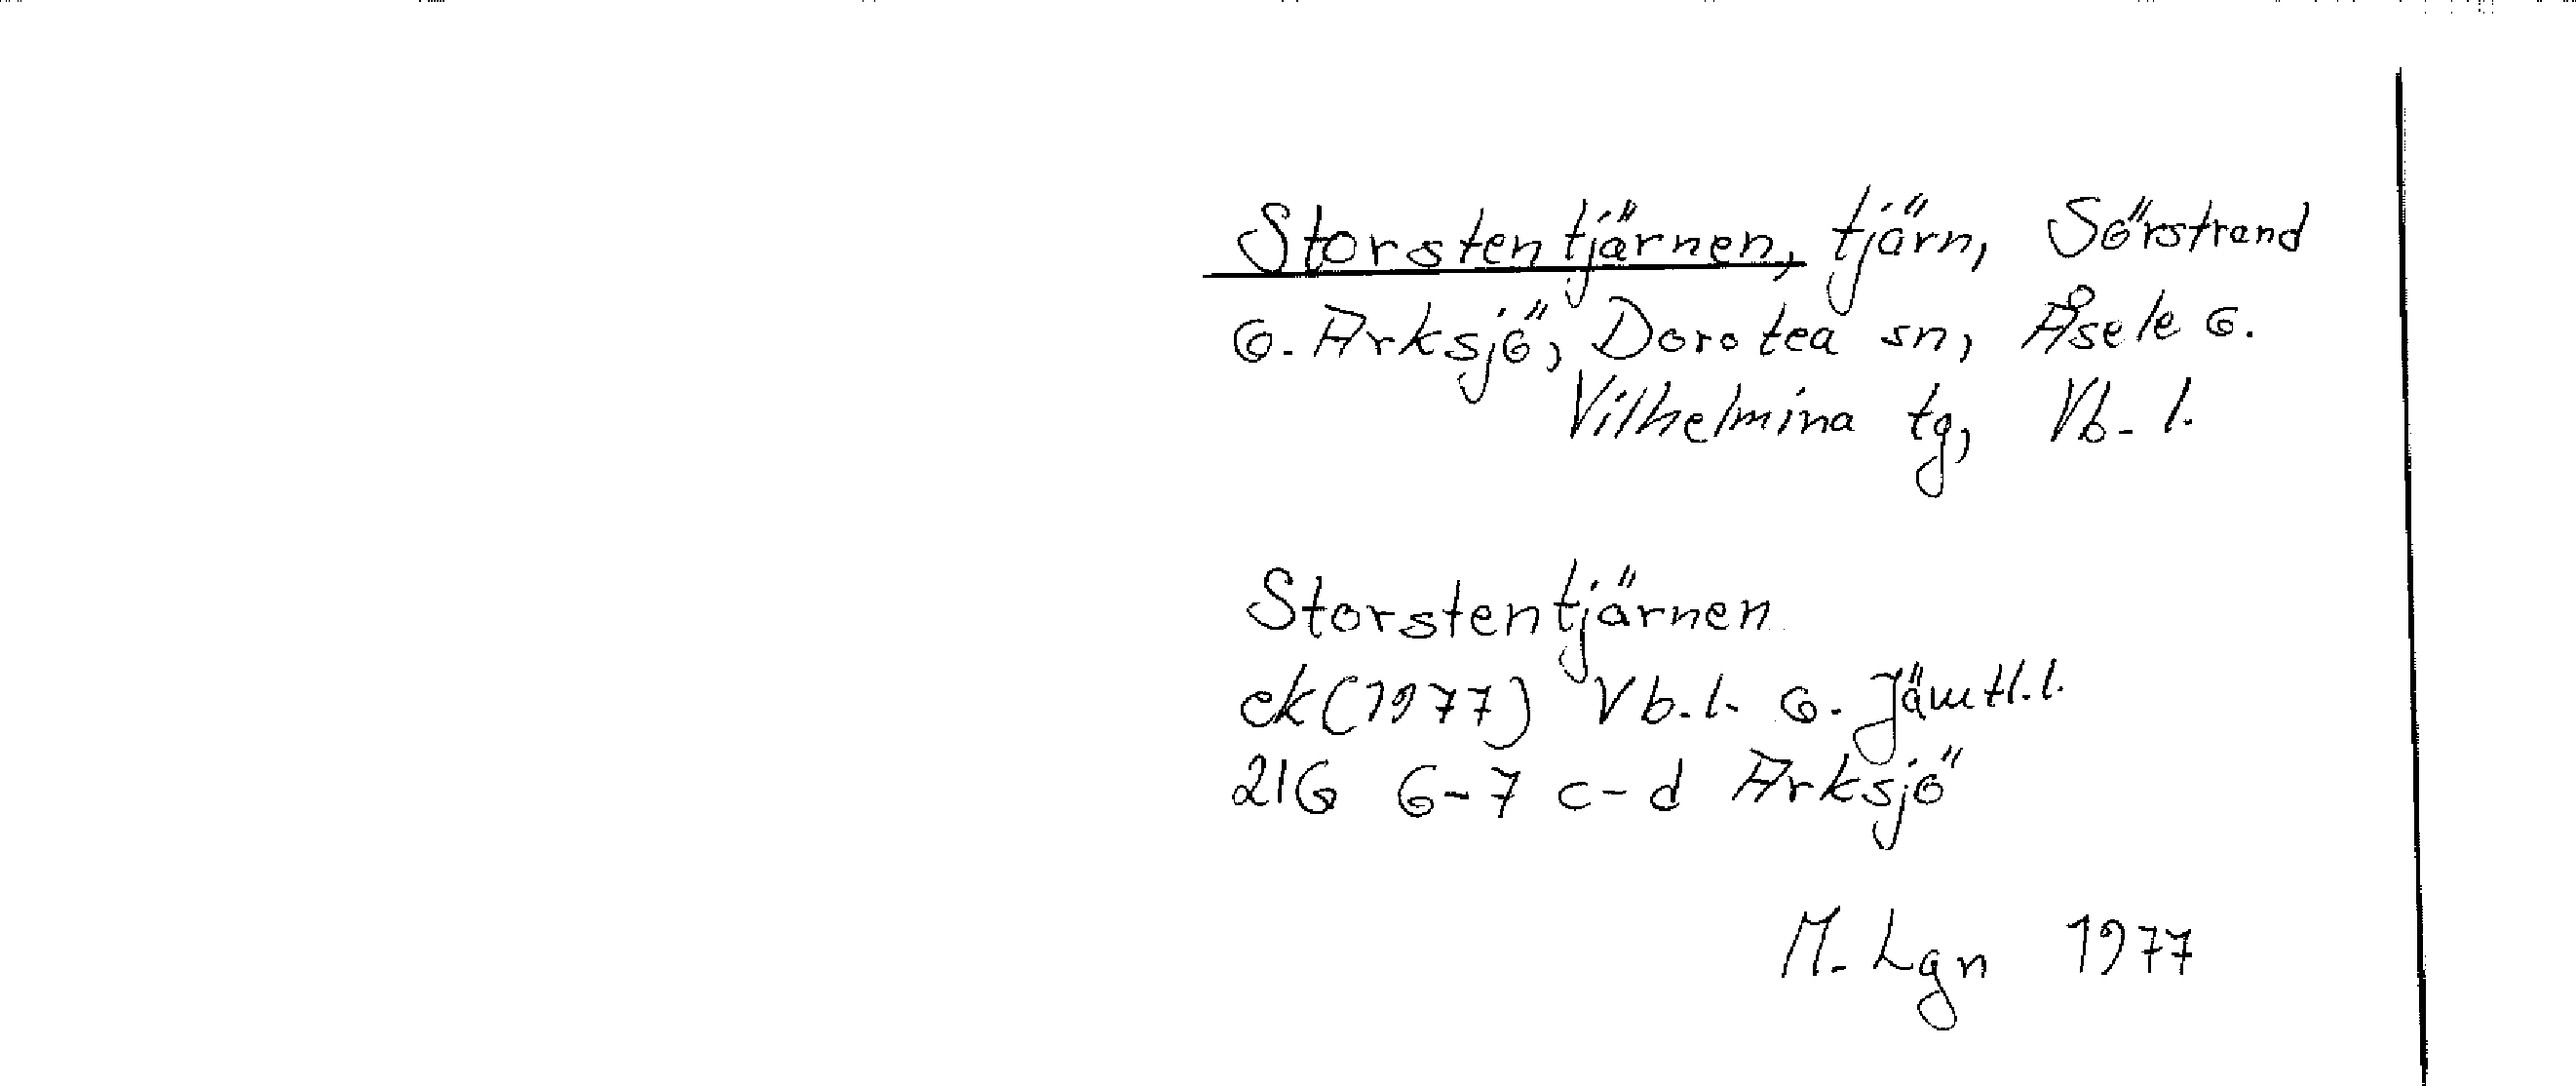 Storstentjärnen, tjärn, Sörstrand
o. Arksjö, Dorotea sn, Åsele o.
Vilhelmina tg, Vb. l.
Storstentjärnen
ek (1977) Vb. l. o. Jämtl. l.
21G 6-7 c-d Arksjö
M. Lgn 1977